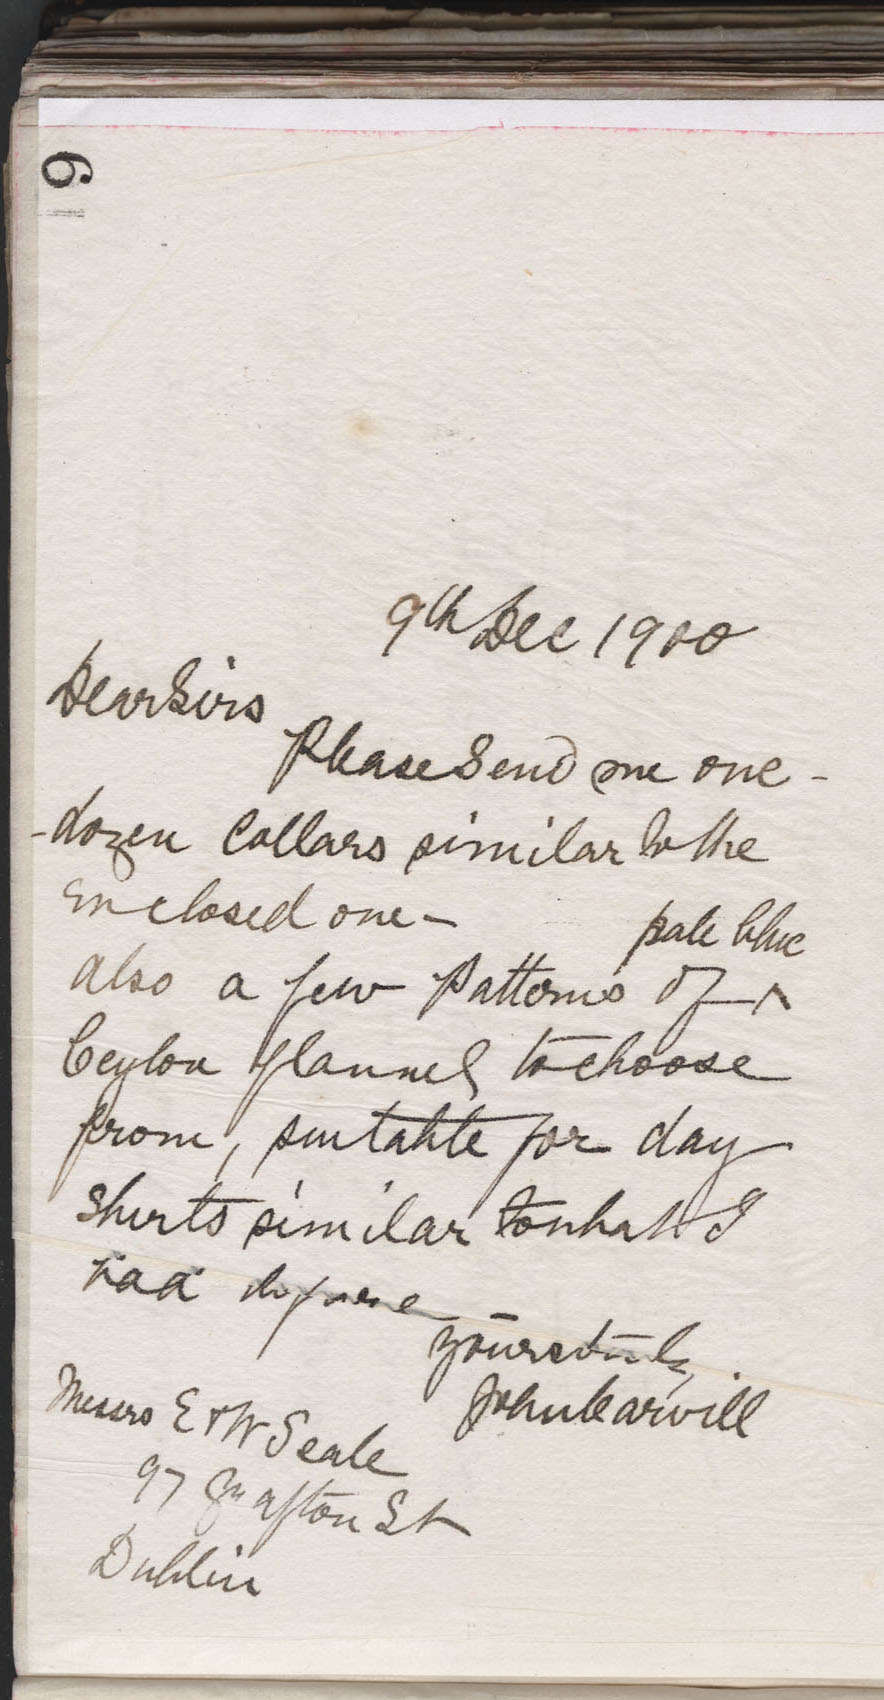 9
9th Dec 1900
Dear Sirs
Please Send me one -
- dozen Collars similar to the
enclosed one -
pale blue
also a few Patterns of ^
Ceylon flannel to choose
from, suitable for day
shirts similar to what I
had before
yours truly
John Carvill
Messrs E & W Seale
97 Grafton St
Dublin